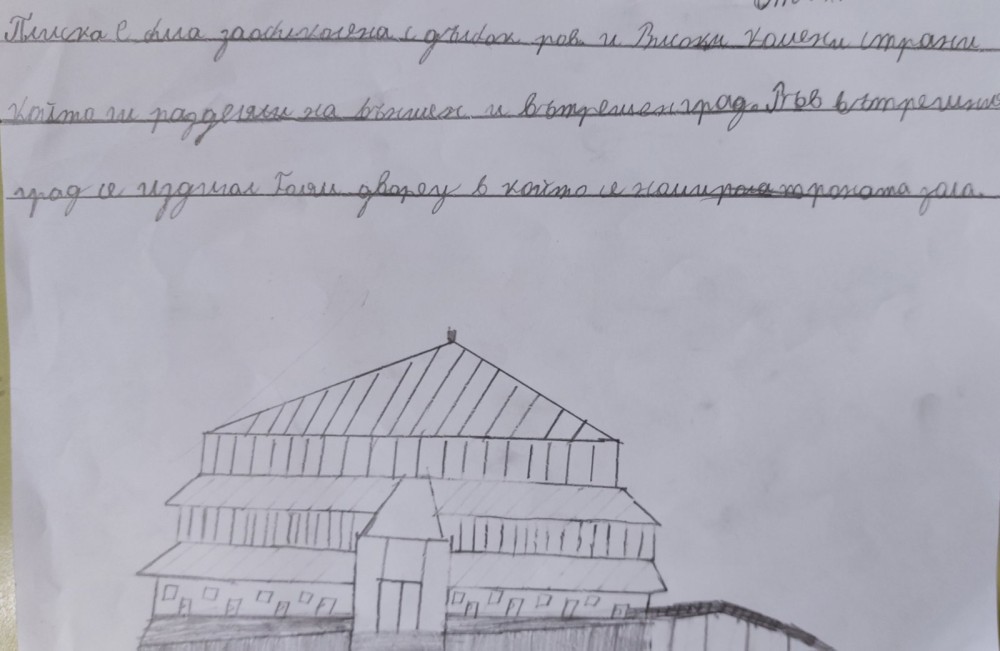 Плиска е била заобиколена с дълбок ров и Високи камени страни
който ги разделяли на външен и вътрешен град. Във вътрешния
град се издигал Голям дворец в който се намирала тронната зала.